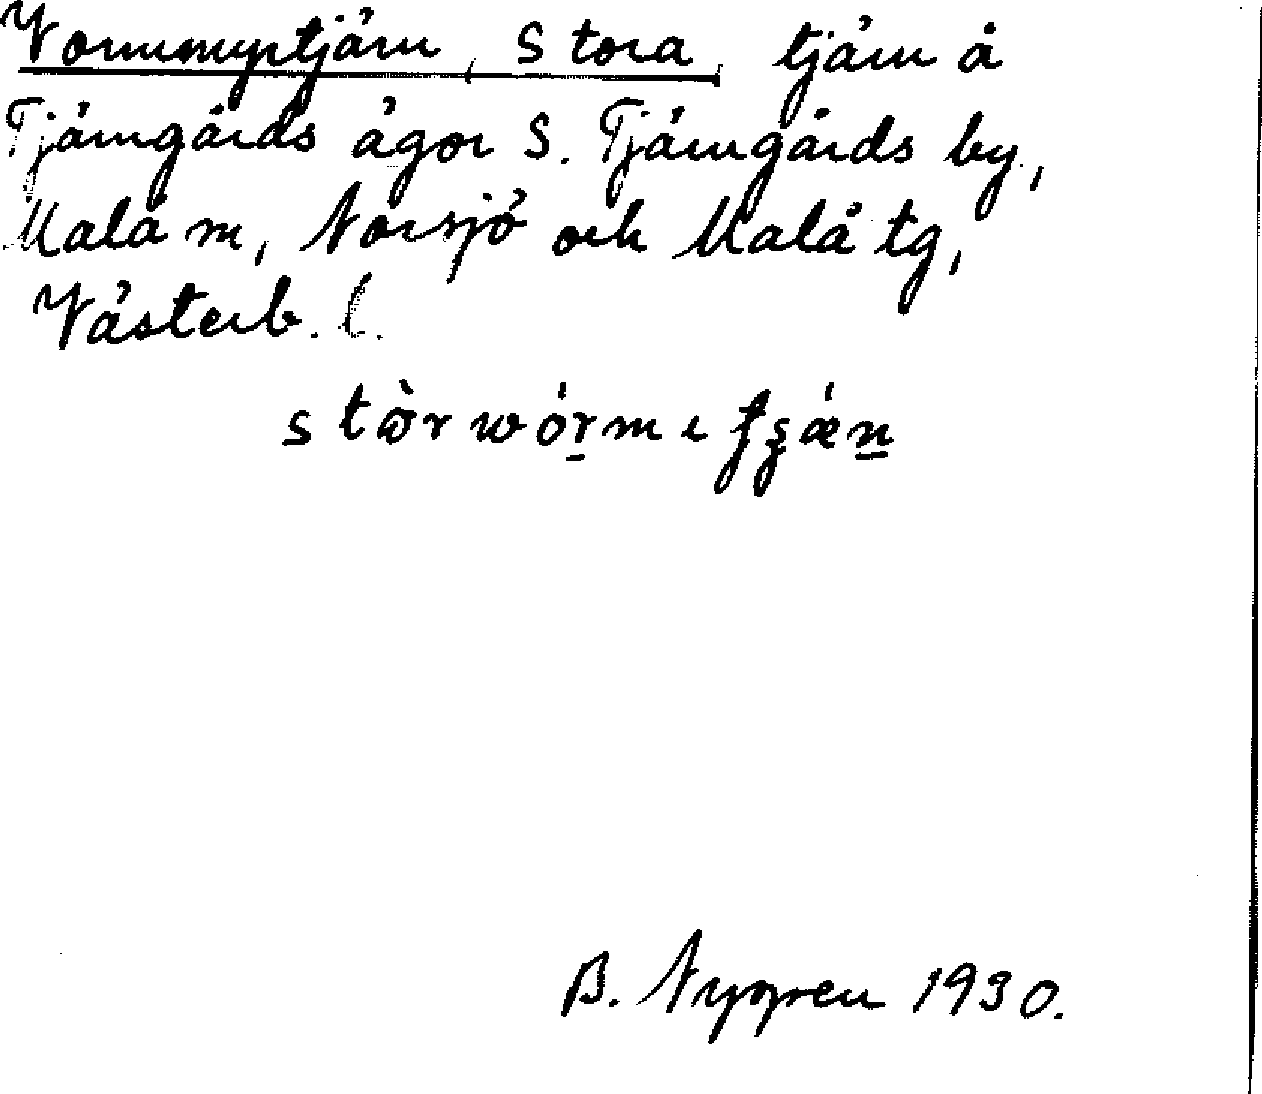 Vormmyrtjärn, Stora, tjärn å
Tjärngårds ägor S. Tjärngårds by,
Malå sn, Norsjö och Malå tg,
Västerb. l.
B. Nygren 1930.